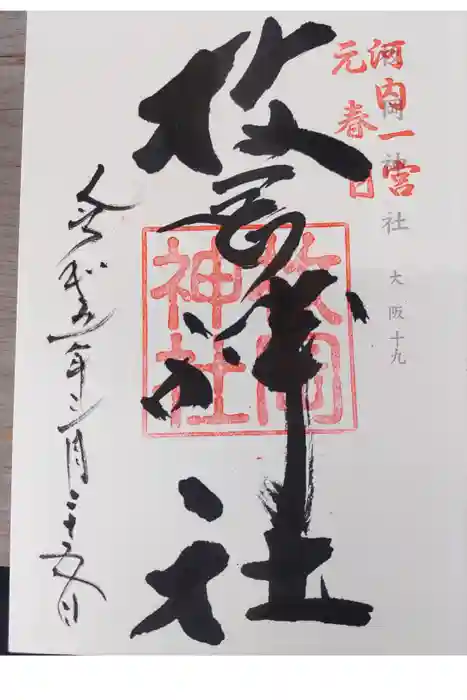 河内一宮
元春日
枚岡神社 大阪十九
枚岡神社
枚岡
神社
令和五年三月二十五日